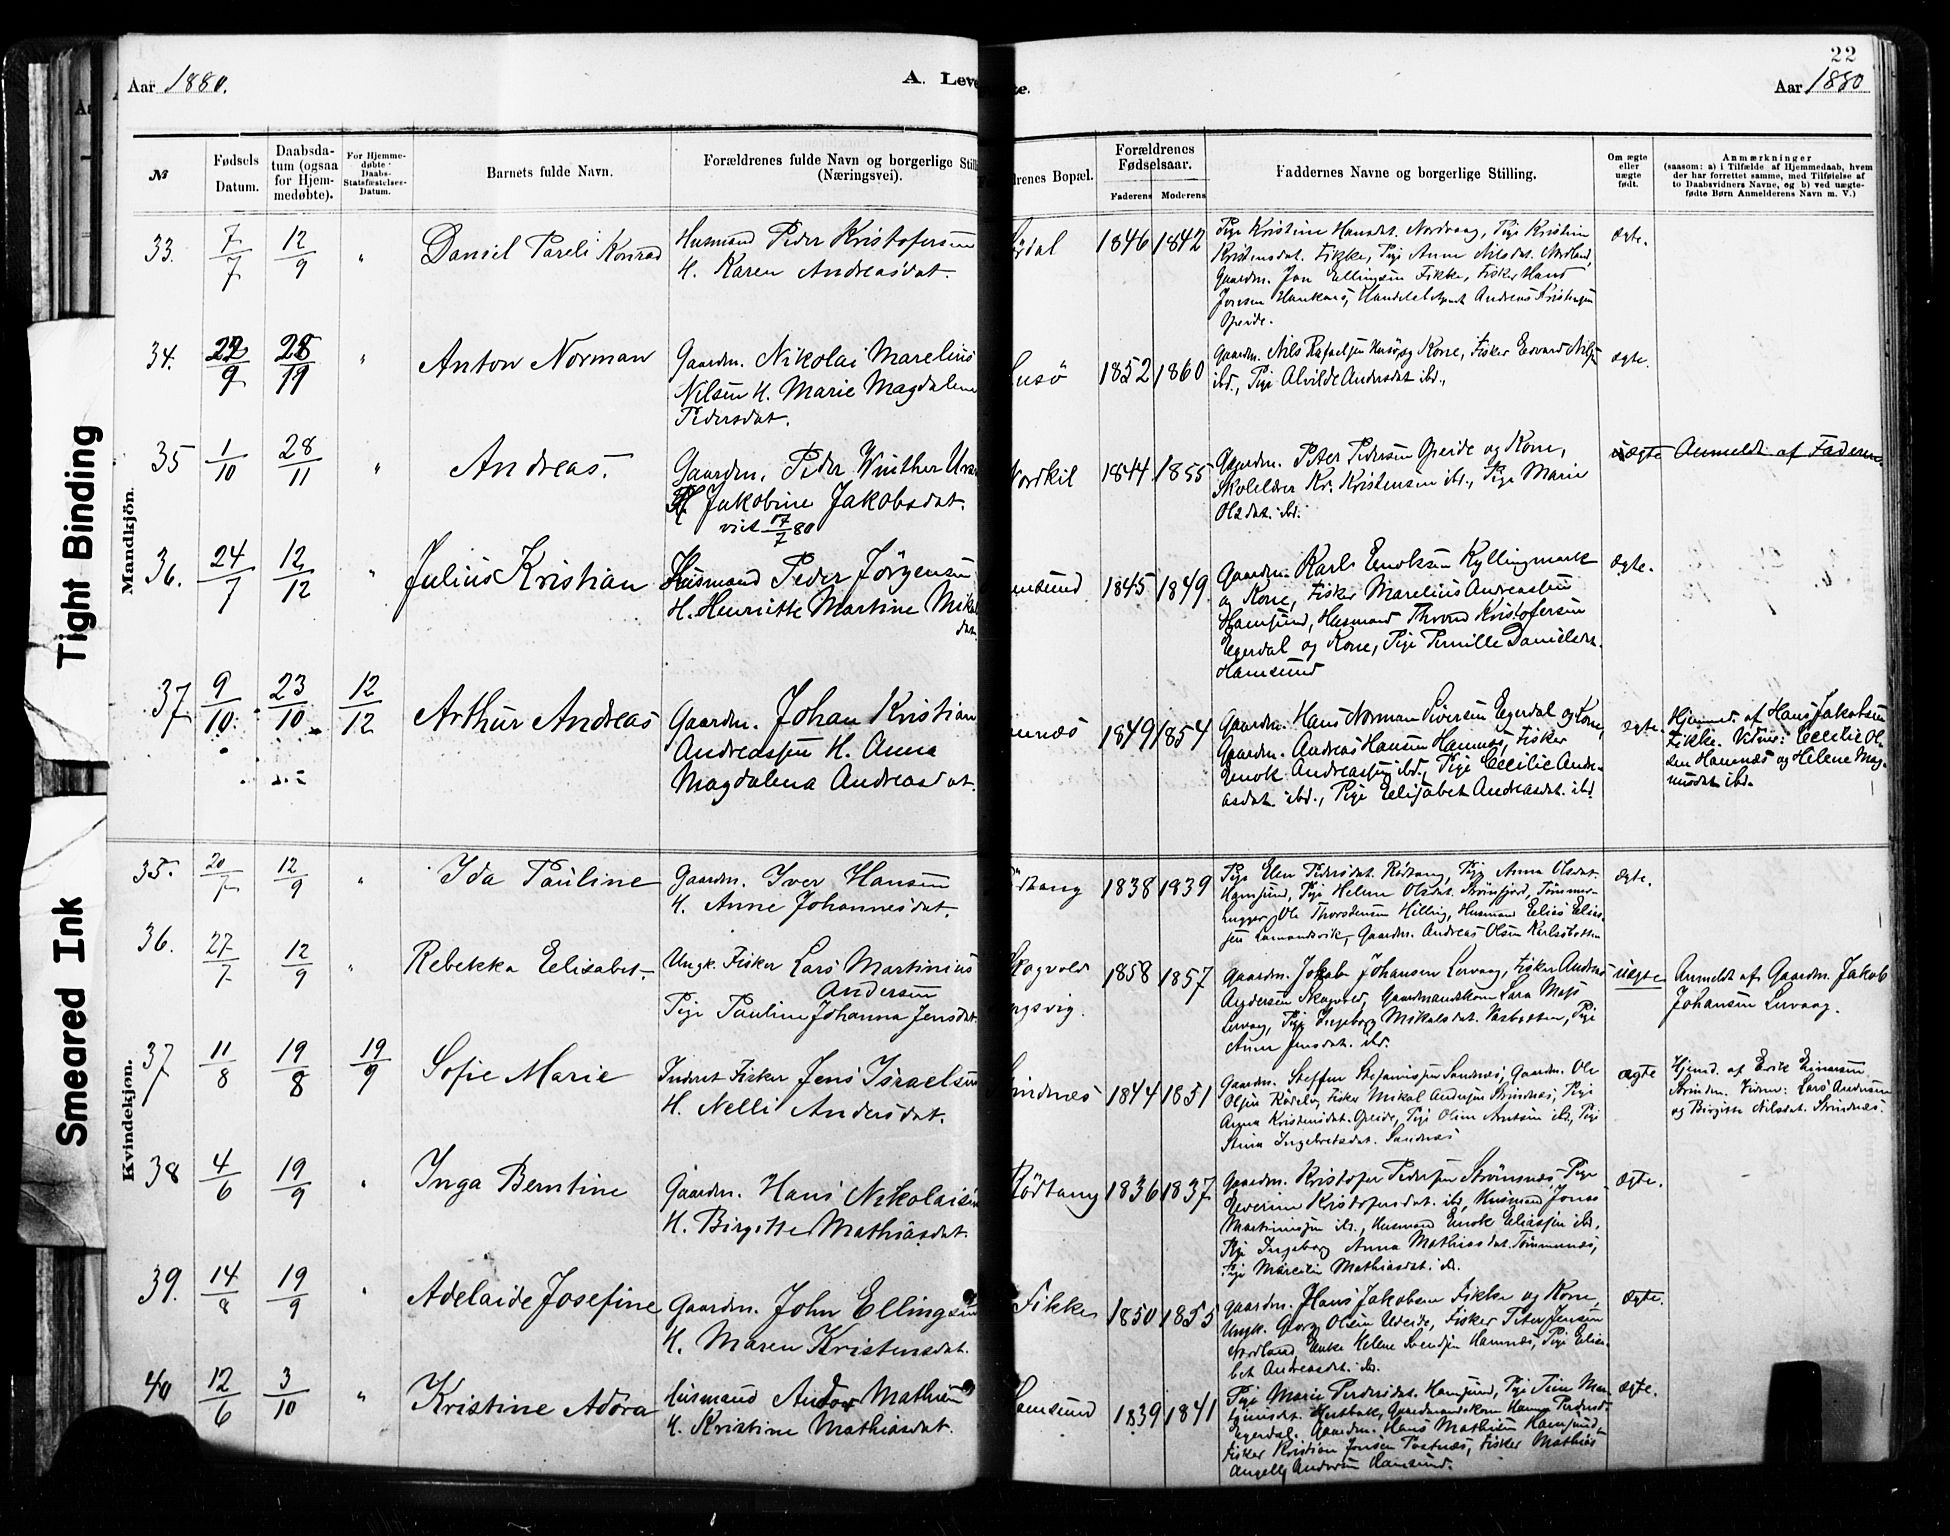 22
Aar 1880.
A. Leve
te.
Aar 1880
№
Fødsels Datum.
Daabsdatum (ogsaa for Hjemmedøbte).
For Hjemmedøbte Daabs-Statsfæstelses-Datum.
Barnets fulde Navn.
Forældrenes fulde Navn og borgerlige Stilli (Næringsvei).
drenes Bopæl.
Forældrenes Fødselsaar.
Faderens
Moderens
Faddernes Navne og borgerlige Stilling.
Om ægte eller uægte født.
Anmærkninger
(saasom: a) i Tilfælde af Hjemmedaab, hvem der har forrettet samme, med Tilføielse af to Daabsvidners Navne, og b) ved uægtefødte Børn Anmelderens Navn m. V.)
Tight Binding
Smeared Ink
Mandkjön.
33. 7/7 12/9 " Daniel Pareli Konrad
Husmand Peder Kristofersen
H. Karen Andreasdat.
1846 1842
Pige Kristine Hansdat. Nordvaag, Pige Kristine
Kristensdat. Fikke, Pige Anne Nilsdat. Nordland,
Gaardm. Jon Ellingsen Fikke, Fisker Hans
Andreas Kristensen
Opeide.
ægte.
34. 9 " Anton Norman
Gaardm. Nikolai Marelius
Nilsen H. Marie Magdalene
Pedersdat.
usö 1852 1860
Gaardm. Nils Rafaelsen Husö og Kone, Fisker Edvard Nilsen
ibd., Pige Alvilde Andersdat ibd.,
ægte.
35 1/10 28/11 " Andreas.
Gaardm. Peder Winther
H. Jakobine Jakobsdat.
viet 17/7 80
Nordkil 1844 1855
Gaardm. Peter Pedersen Opeide og Kone,
Skolelærer Kr. Kristensen ibd., Pige Marie
Olsdat. ibd.
uægte Anmeldt af Faderen
36. 24/7 12/12 " Julius Kristian
Husmand Peder Jörgensen
H. Henriette Martine Mikal
dat.
msund 1845 1849.
Gaardm. Karl Enoksen Kyllingmark
og Kone, Fisker Marelius Andreassen
Hamsund, Husmand Thrond Kristofersen
Egerdal og Kone, Pige Pernille Danielsdt.
Hamsund
ægte.
37. 9/10 23/10 12/12 Arthur Andreas
Gaardm. Johan Kristian
Andreassen H. Anna
Magdalena Andreasdat.
mnæs 1849 1854
Gaardm. Hans Norman Siversen Egerdal og Kone,
Gaardm. Andreas Hansen Hamnæs, Fisker
Enok Andreassen ibd., Pige Cecilie Andre-
asdat. ibd., Pige Elisabet Andreasdat. ibd
ægte.
Hjemd. af Hans Jakobsen
Fikke. Vidner: Cecilie Ol-
sen Hamnæs og Helene Mag-
nusdat ibd.
Kvindekjøn.
35. 20/7 12/9 " Ida Pauline
Gaardm. Iver Hansen
H. Anne Johannesdat.
ödtang 1838 1839
Pige Elen Pedersdat. Rödtang, Pige Anna Olsdat.
Hamsund, Pige Helene Olsdat. Strömfjord, Tömmer-
hugger Ole Thorstensen Helling, Husmand Elias Elias-
sen Lomundsvik, Gaardm. Andreas Olsen Karlsbotten
ægte.
36. 27/7 12/9 " Rebekka Elisabet
Ungk. Fisker Lars Martinius
Andersen
Pige Pauline Johanna Jensdat.
Skogvold
ngsvig. 1858 1857
Gaardm. Jakob Johansen Lervaag, Fisker Andreas
Andersen Skogvold, Gaardmandskone Sara
Lervaag, Pige Ingeborg Mikalsdat. Pige
Anne Jensdat. ibd.
uægte Anmeldt af Gaardm. Jakob
Johansen Lervaag.
37 11/8 19/8 19/9 Sofie Marie
Inderst Fisker Jens Israelsen
H. Nelli Andersdat.
rindnæs 1844 1851
Gaardm. Steffen Sandnæs, Gaardm. Ole
Olsen Fisker Mikal Andersen Strindnæs, Pige
Anna Kristensdat. Opeide, Pige Oline Arntsen ibd., Pige
Stina Ingebretsdat. Sandnæs
ægte
Hjemd. af Erik Einarsen
Strindn. Vidner: Lars Andersen
og Birgitte Nilsdat. Strindnæs.
38 4/6 19/9 " Inga Berntine
Gaardm. Hans Nikolaisen
H. Birgitte Mathiasdat.
Rödtang 1836 1837
Gaardm. Kristofer Pedersen Strömsnæs, Pige
Severine Kristofersdat. ibd., Husmand Jonas
Martinussen ibd., Husmand Enok Eliassen ibd.,
Pige Ingeborg Anna Mathiasdat. Tömmernæs,
Pige Marcelie Mathiasdat. ib.
ægte.
39. 14/8 19/9 " Adelaide Josefine
Gaardm. John Ellingsen
H. Maren Kristensdat.
Fikke 1850 1855
Gaardm. Hans Jakobsen Fikke og Kone,
Ungk. Georg Olsen Fisker Peter Jensen
Nordland, Enke Helene Svendsen Hamnæs, Pige Elisa-
bet Andreasdt. ib.
ægte.
40 12/6 3/10 " Kristine Adora
Husmand Andor Mathisen
H. Kristine Mathiasdat.
Hamsund 1839 1841
Pige Marie Pedersdat. Hamsund, Pige Mar-
Gaardmandskone Hanna Pedersdt.
Egerdal, Gaardm. Hans Mathisen Hamsund,
Fisker Kristian Jensen Fisker Mathias
Angell Andersen Hamsund.
ægte.